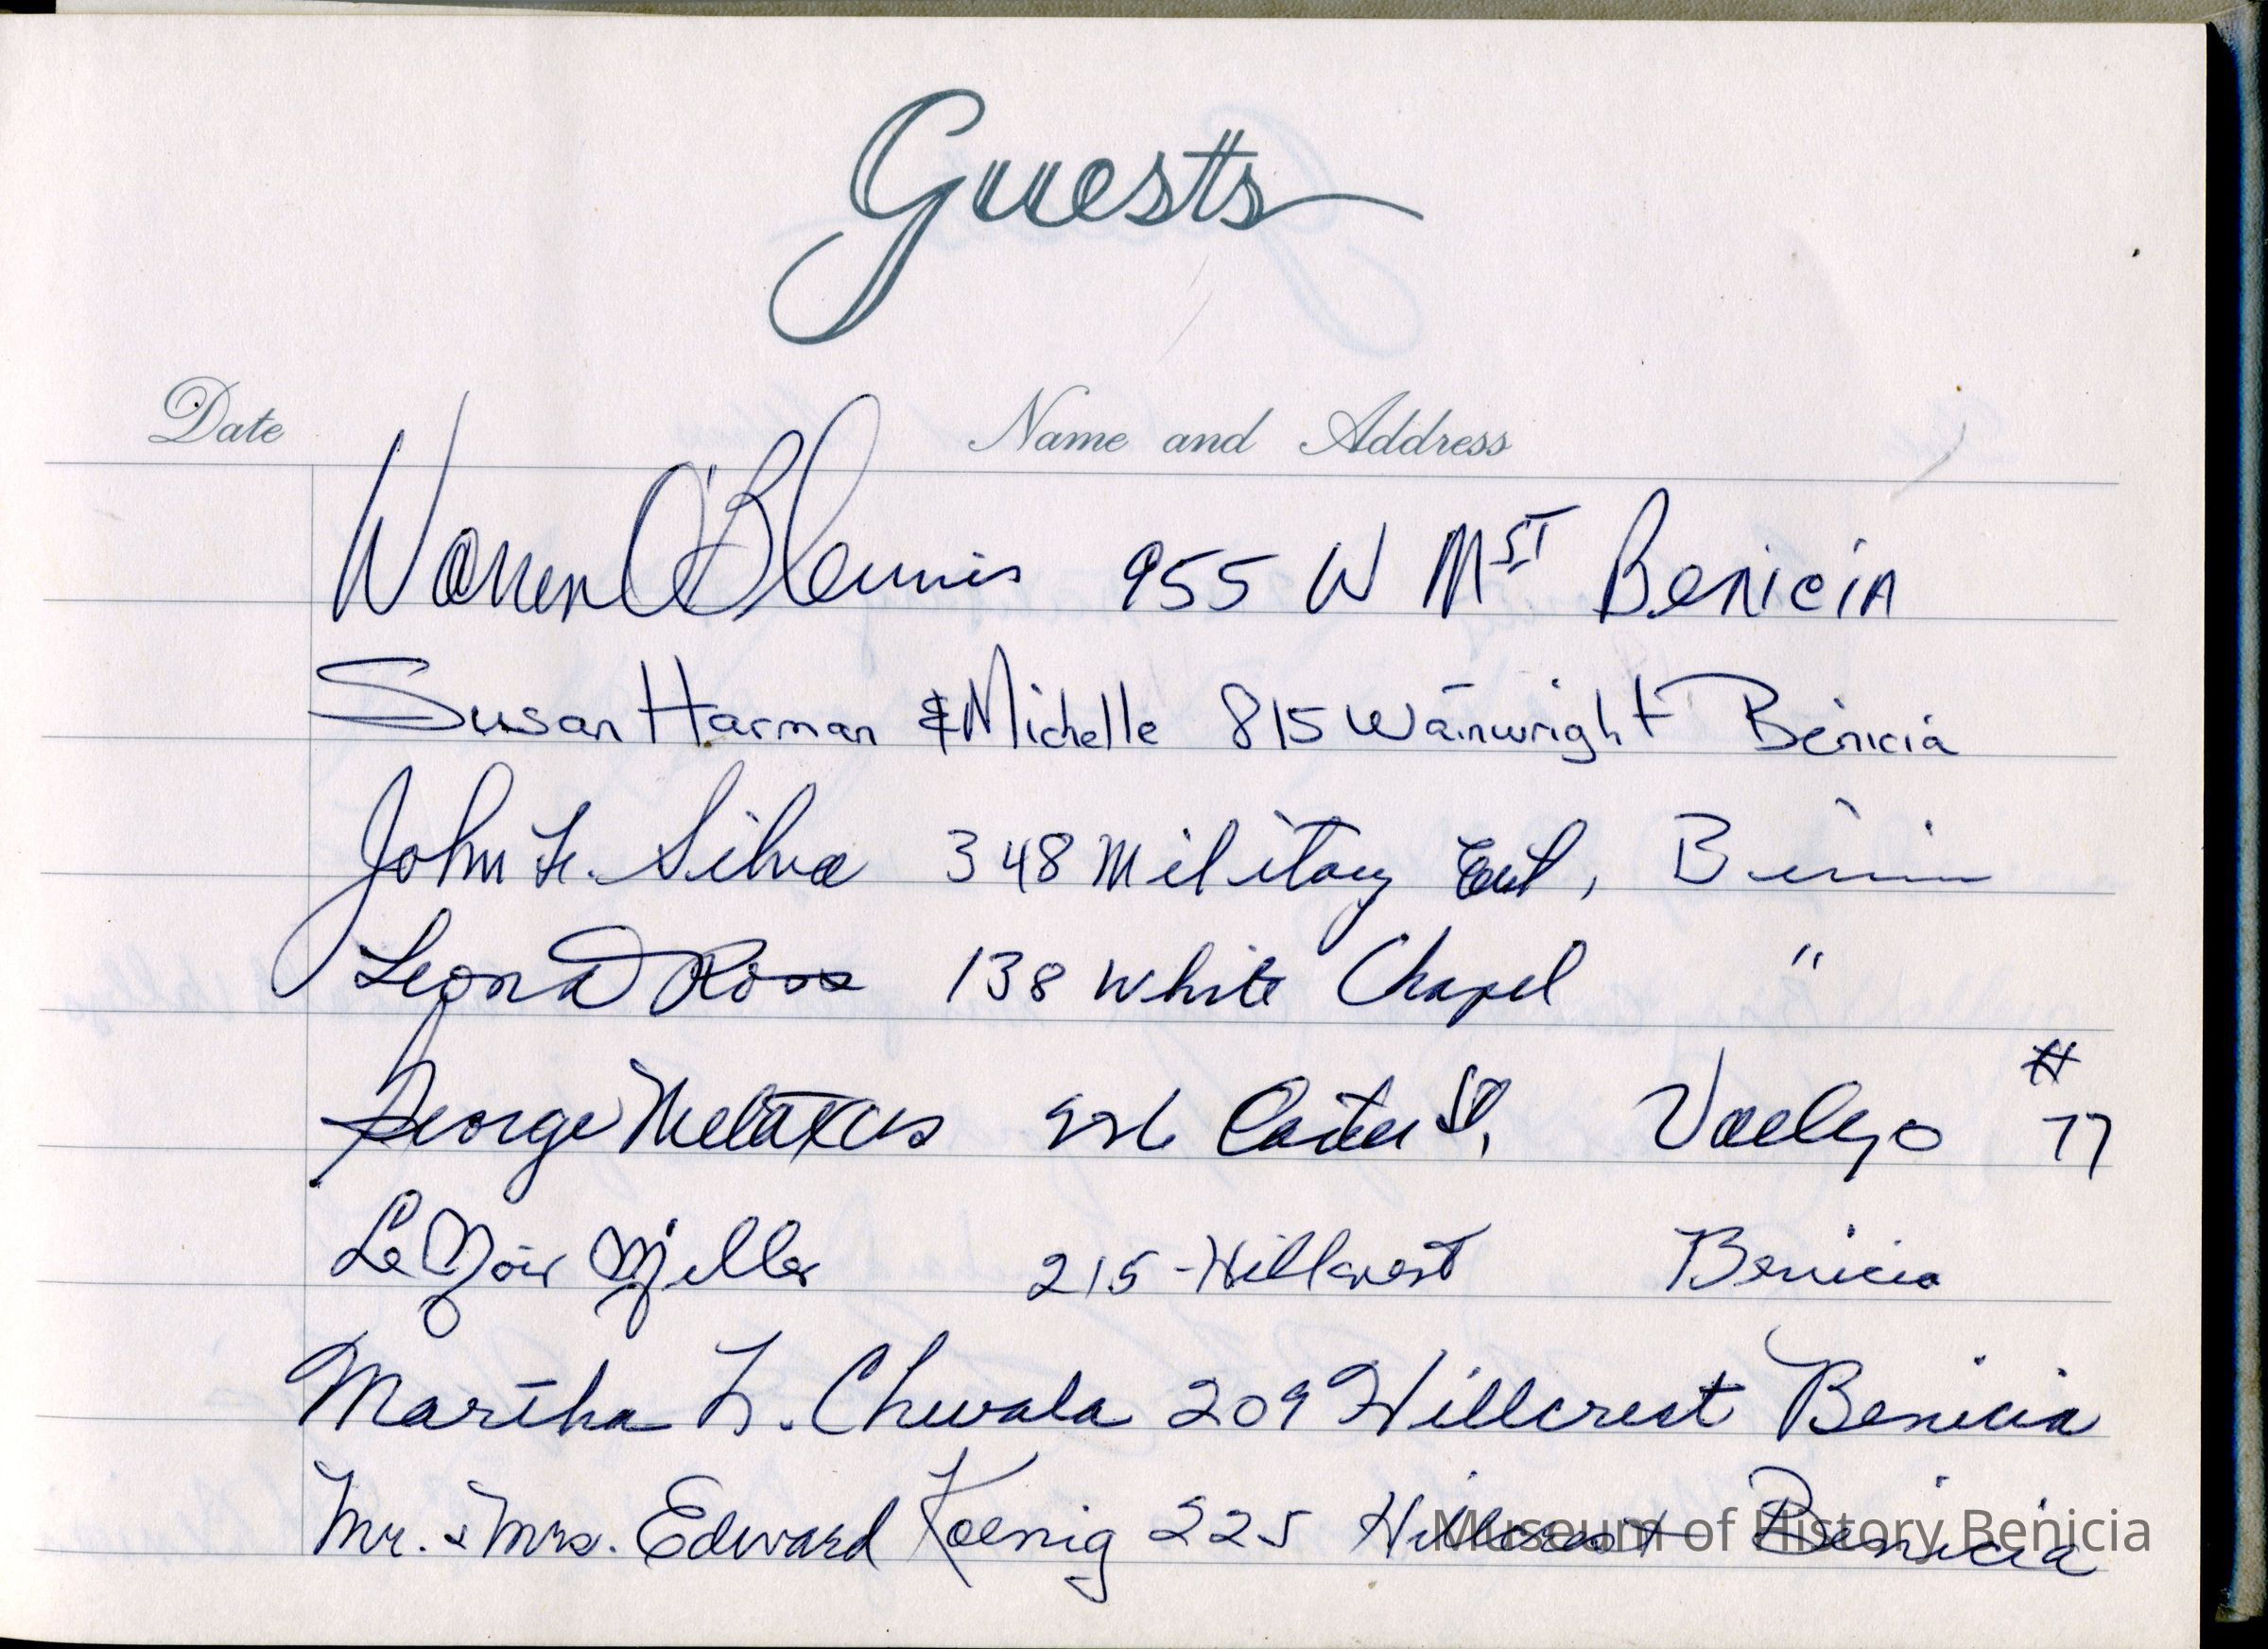 Guests
Date Name and Address
Warren O'Blennis 955 W M ST Benicia
Susan Harman & Michelle 815 Wainwright Benicia
John F. Silva 348 Military East, Benicia
Leona Ross 138 White Chapel "
George Metaxas Carter St, Vallejo # 77
LeMoir Miller 215 - Hillcrest Benicia
Martha L. Chwala 209 Hillcrest Benicia
Mr. & Mrs. Edward Koenig 225 Hillcrest Benicia
Museum of History Benicia